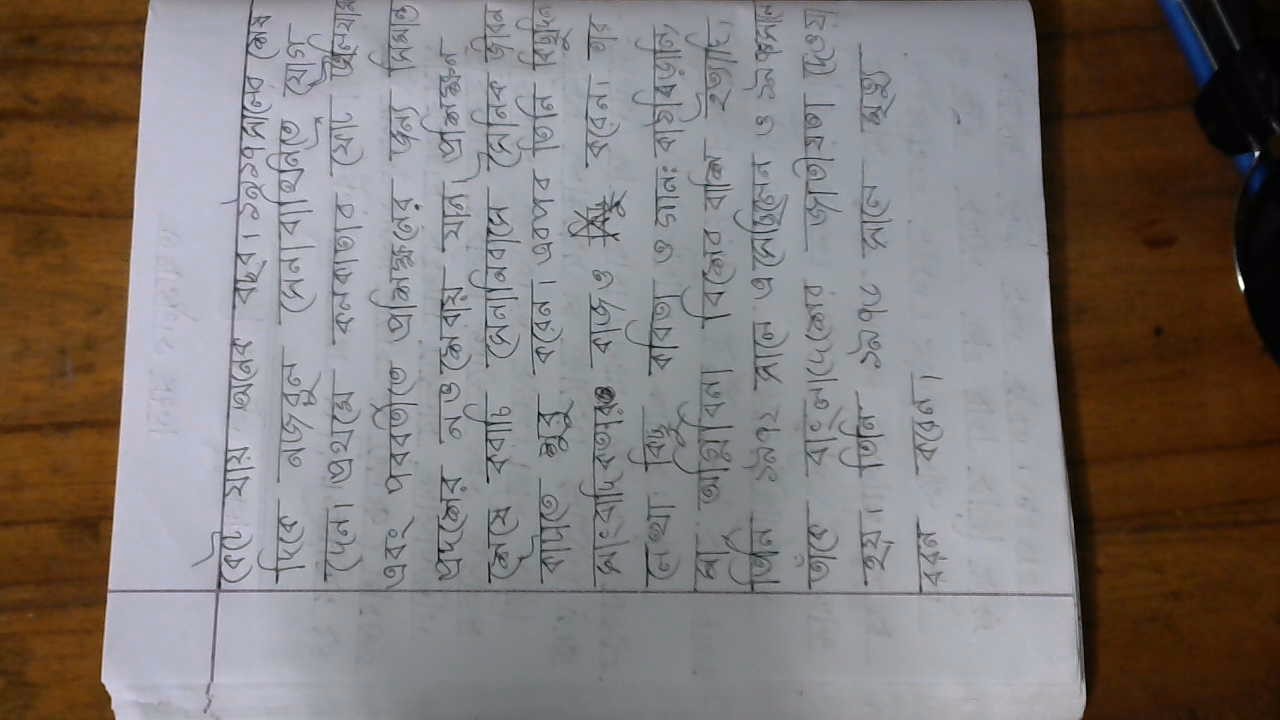 কেটে যায় অনেক বছর। ১৯১৭ সালের শেষ
দিকে নজরুল সেনাবাহিনিতে যোগ
দেন। প্রথমে কলকাতার ফোর্ট উইলিয়াম
এবং পরবর্তীতে প্রশিক্ষনের জন্য সিমান্ত
প্রদেশের নওশেরায় যান। প্রশিক্ষণ
শেষে করাচি সেনানিবাসে সৈনিক জীবন
কাটাতে শুরু করেন। এরপর তিনি কিছুদিন
সাংবাদিকতার কাজও করেন। তার
লেখা কিছু কবিতা ও গানঃ কাঠবিড়ালি,
মা, অগ্নিবিনা বিষের বাঁশি ইত্যাদি,
তিনি ১৯৭২ সালে এসেছিলেন ও ১৯৭৬সালে
তাঁকে বাংলাদেশের জাতীয়তা দেওয়া
হয়। তিনি ১৯৭৬ সালে মৃত্যু
বরন করেন।